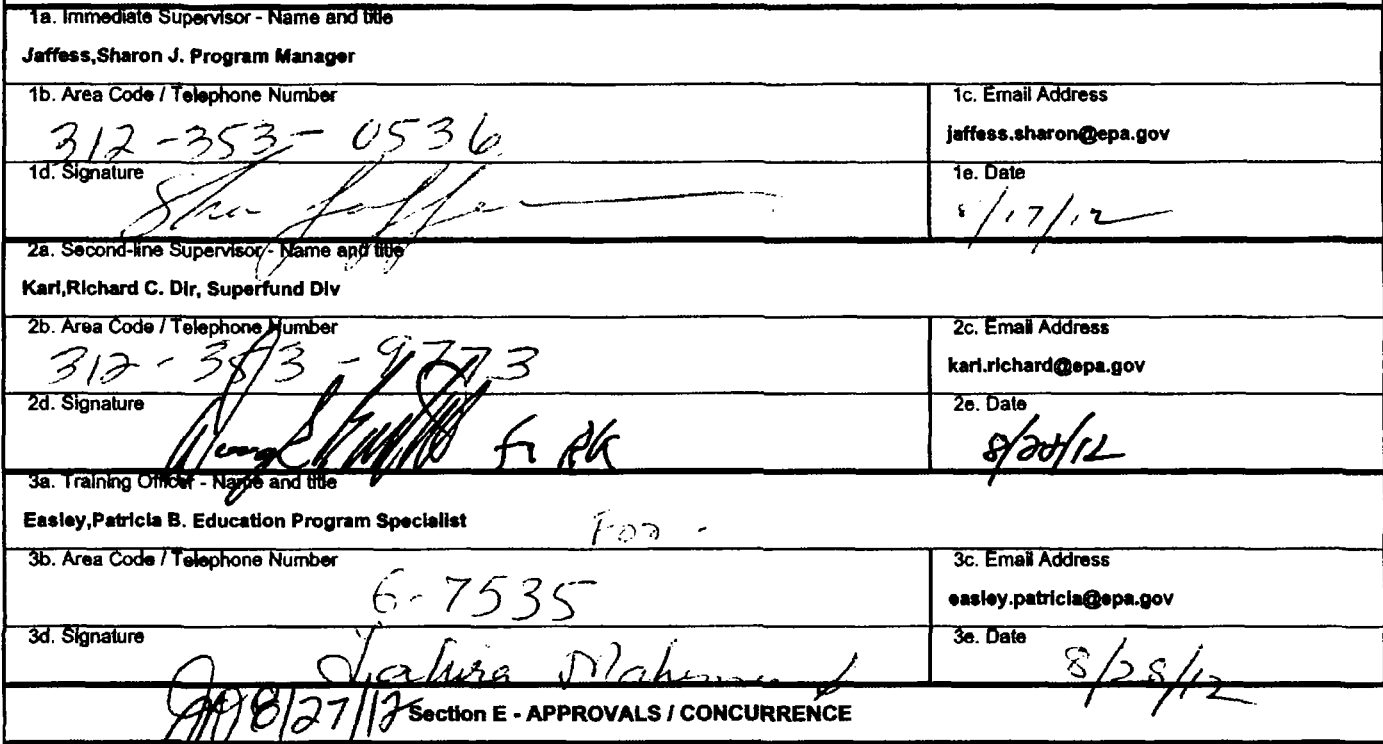 1a. Immediate Supervisor - Name and title
Jaffess,Sharon J. Program Manager
1b. Area Code / Telephone Number
312-353-0536
1c. Email Address
jaffess.sharon@epa.gov
1d. Signature
1e. Date
8/17/12
2a. Second-line Supervisor - Name and title
Karl,Richard C. Dir, Superfund Div
2b. Area Code / Telephone Number
312-353-9773
2c. Email Address
karl.richard@epa.gov
2d. Signature
for RK
2e. Date
8/20/12
3a. Training Officer - Name and title
Easley,Patricia B. Education Program Specialist
For -
3b. Area Code / Telephone Number
6-7535
3c. Email Address
easley.patricia@epa.gov
3d. Signature
3e. Date
8/28/12
8/27/12
Section E - APPROVALS / CONCURRENCE